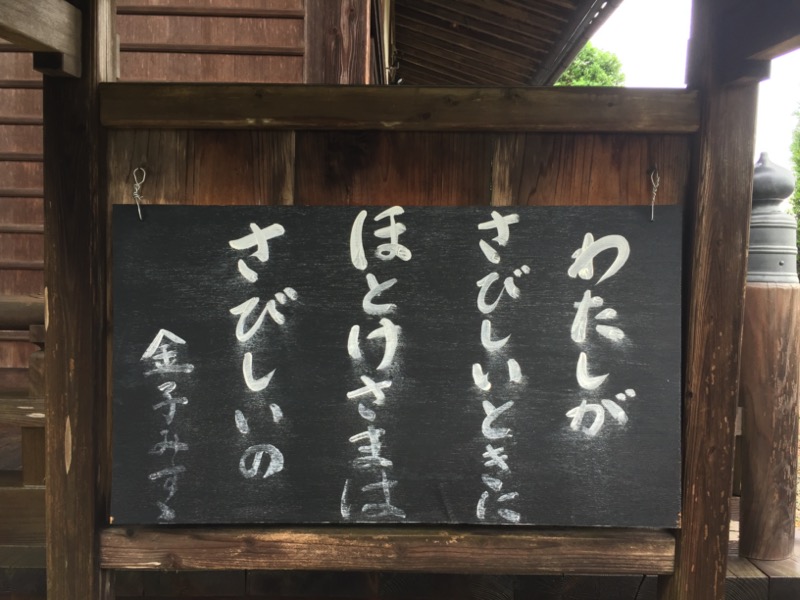 わたしが
さびしいときに
ほとけさまは
さびしいの
金子みすゞ